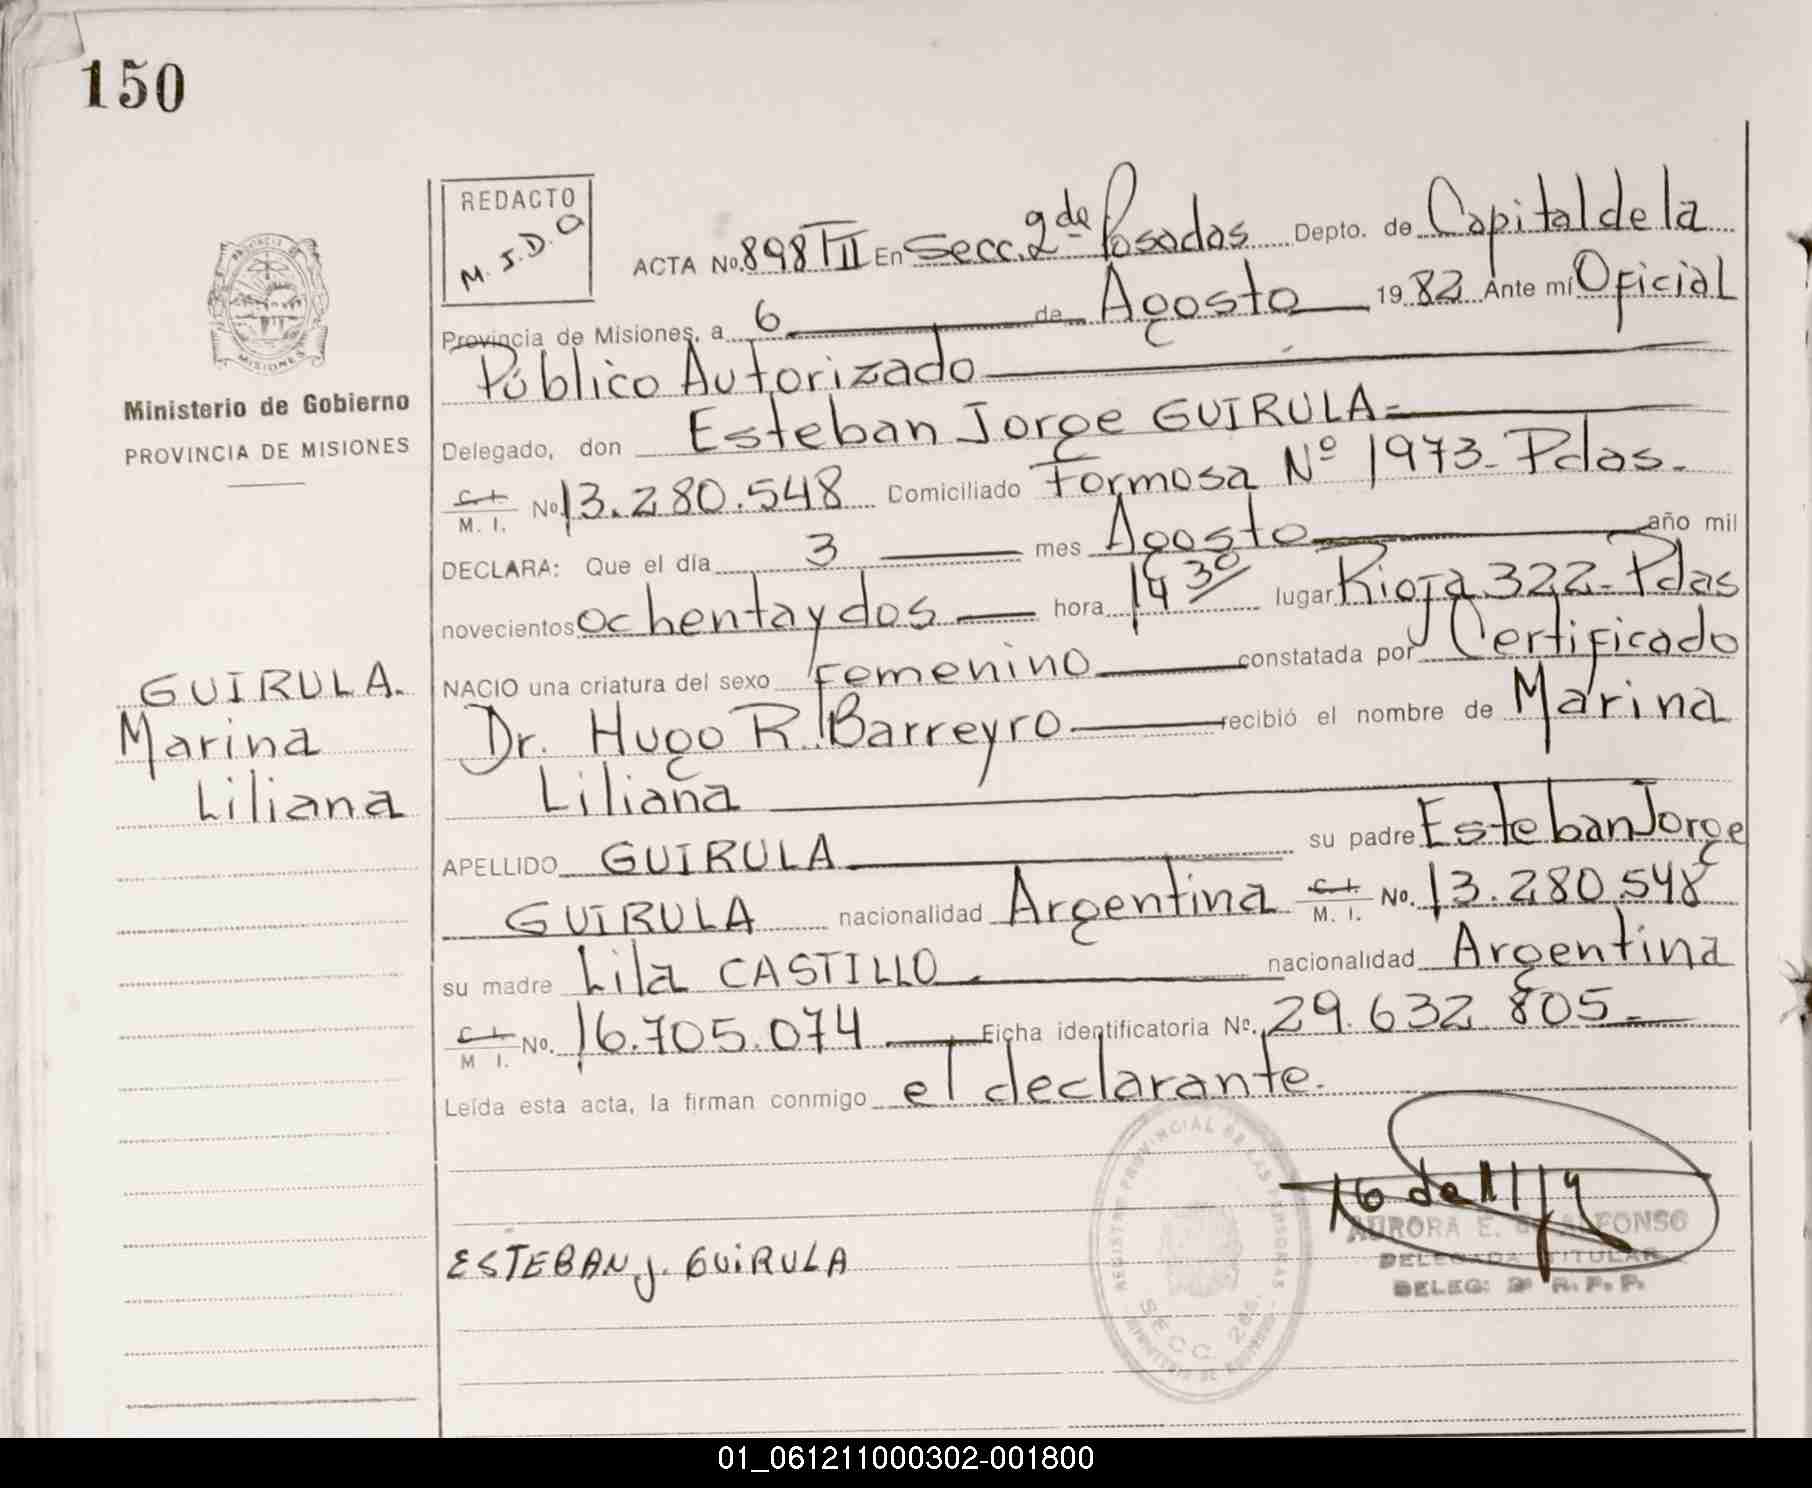 150
REDACTO
M. J. D. O
ACTA No. 898 TII En Secc. 2da Posadas Depto. de Capital de la
Provincia de Misiones, a 6 de Agosto 1982 Ante mí Oficial
Público Autorizado
Delegado, don Esteban Jorge GUIRULA =
C. I. M. I. No 13.280.548 Domiciliado Formosa Nº 1973 - Pdas.
DECLARA: Que el día 3 mes Agosto año mil
novecientos ochenta y dos hora 14 30 lugar Rioja 322 - Pdas
NACIO una criatura del sexo Femenino constatada por Certificado
Dr. Hugo R. Barreyro recibió el nombre de Marina
Liliana
APELLIDO GUIRULA su padre Esteban Jorge
GUIRULA nacionalidad Argentina C. I. M. I. No. 13.280.548
su madre Lila CASTILLO nacionalidad Argentina
C. I. M I. No. 16.705.074 Ficha identificatoria No. 29.632.805 -
Leída esta acta, la firman conmigo el declarante.
PROVINCIA DE
MISIONES
Ministerio de Gobierno
PROVINCIA DE MISIONES
GUIRULA.
Marina
Liliana
ESTEBAN J. GUIRULA
REGISTRO PROVINCIAL DE LAS PERSONAS
SECC. 2da.
MINISTERIO DE GOBIERNO
AURORA E. ALFONSO
DELEGADA TITULAR
DELEG: 2ª R. P. P.
01_061211000302-001800